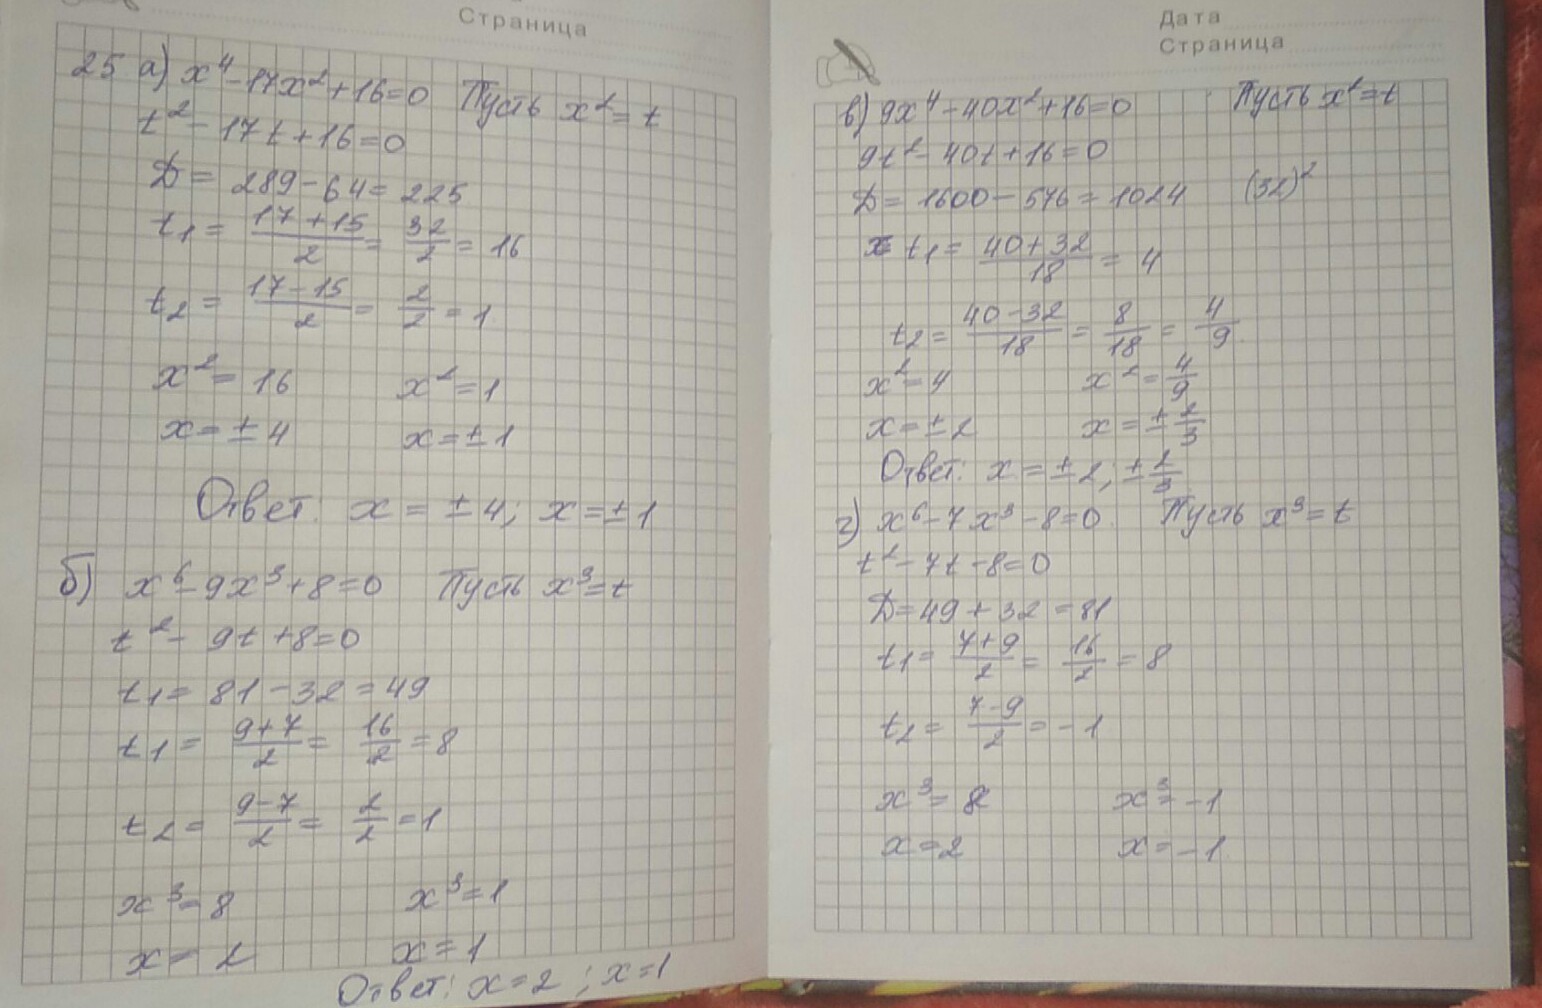 Страница
25 а) x⁴-17x²+16=0 Пусть x²=t
t²-17t+16=0
D= 289-64=225
t₁= (17+15)/2 = 32/2 = 16
t₂= (17-15)/2 = 2/2 = 1
x²=16 x²=1
x=±4 x=±1
Ответ: x=±4; x=±1
б) x⁶-9x³+8=0 Пусть x³=t
t²-9t+8=0
t₁= 81-32=49
t₁= (9+7)/2 = 16/2 =8
t₂= (9-7)/2 = 2/2 =1
x³=8 x³=1
x=2 x=1
Ответ: x=2; x=1
Дата
Страница
в) 9x⁴-40x²+16=0 Пусть x²=t
9t²-40t+16=0
D= 1600-576=1024 (32)²
t₁= (40+32)/18 = 4
t₂= (40-32)/18 = 8/18 = 4/9
x²=4 x²=4/9
x=±2 x=±2/3
Ответ: x=±2; ±2/3
г) x⁶-7x³-8=0 Пусть x³=t
t²-7t-8=0
D=49+32=81
t₁= (7+9)/2 = 16/2 =8
t₂= (7-9)/2 = -1
x³=8 x³=-1
x=2 x=-1